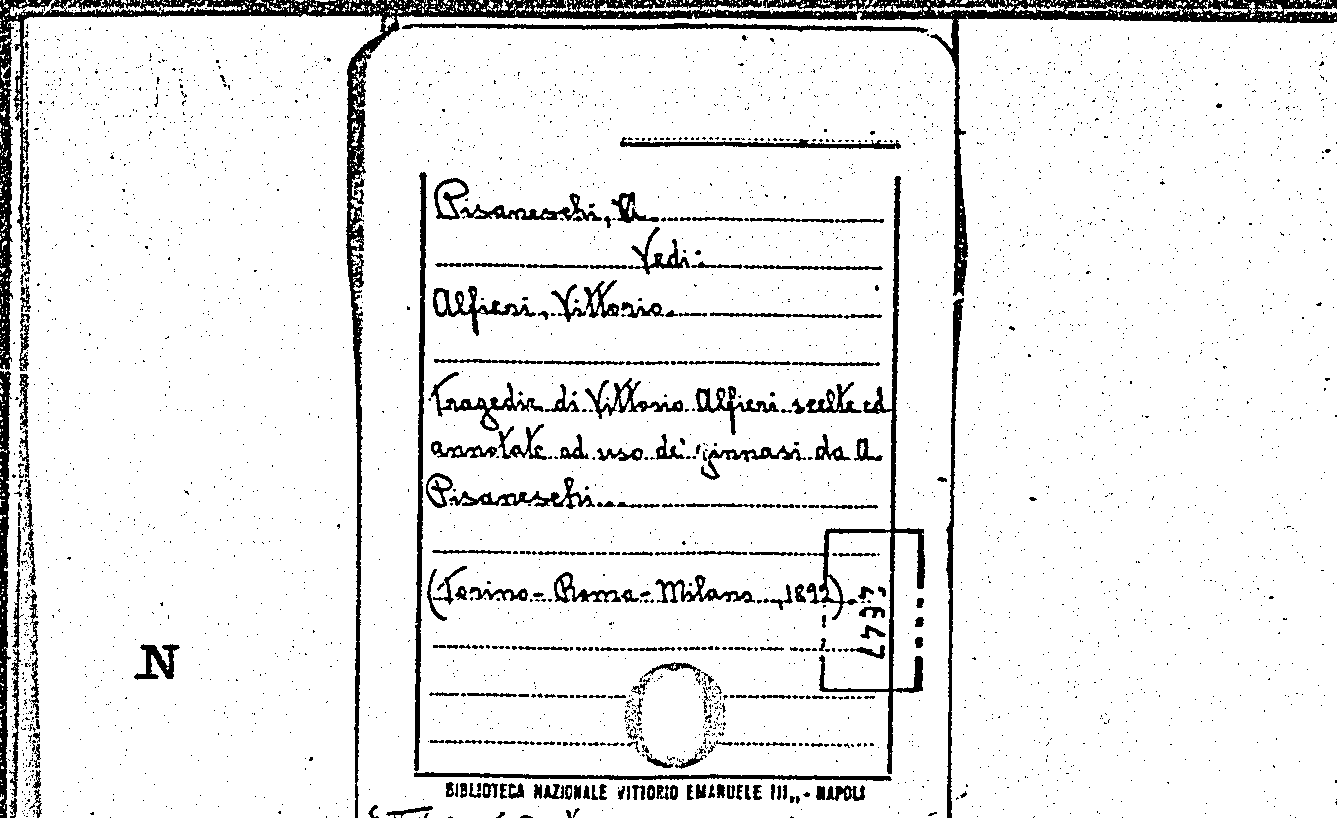 Pisaneschi, A.
Vedi:
Alfieri, Vittorio.
Tragedie di Vittorio Alfieri scelte ed
annotate ad uso de' ginnasi da A.
Pisaneschi...
(Torino - Roma - Milano, 1892).
N
BIBLIOTECA NAZIONALE VITTORIO EMANUELE III„ - NAPOLI